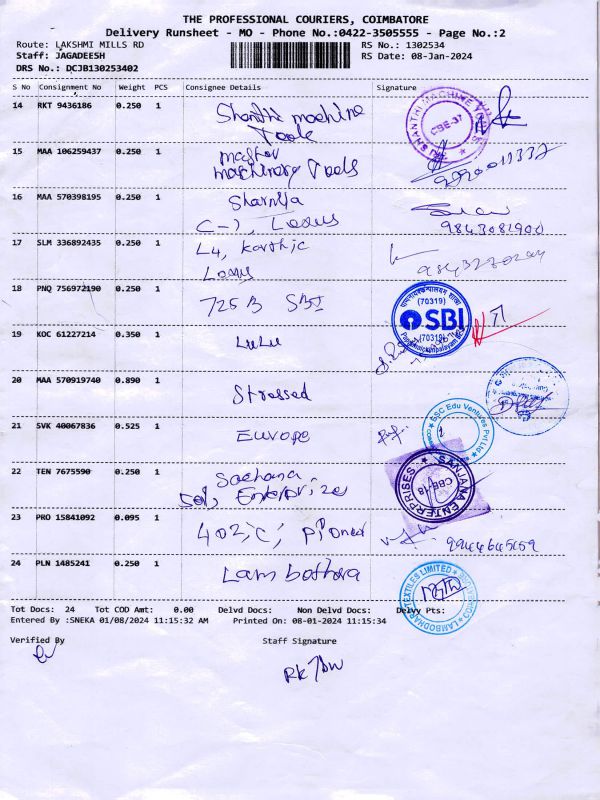 THE PROFESSIONAL COURIERS, COIMBATORE
Delivery Runsheet - MO - Phone No.:0422-3505555 - Page No.:2
Route: LAKSHMI MILLS RD
RS No.: 1302534
Staff: JAGADEESH
RS Date: 08-Jan-2024
DRS No.: DCJB130253402
S No Consignment No Weight PCS Consignee Details Signature
14 RKT 9436186 0.250 1 Shanthi machine
Tools
SHANTHI MACHINE TOOLS
CBE-37
15 MAA 106259437 0.250 1
machinery Tools
16 MAA 570398195 0.250 1
C-7, Lexus
9843081900
17 SLM 336892435 0.250 1 L4, Karthic
Lexus
18 PNQ 756972190 0.250 1 725 B SBI
(70319)
SBI
(70319)
19 KOC 61227214 0.350 1 LULU
20 MAA 570919740 0.890 1 Stressed
21 SVK 40067836 0.525 1 Europe
SSC Edu Ventures Pvt Ltd
22 TEN 7675590 0.250 1
Enterprizes
SANJANA ENTERPRISES
CBE-18
23 PRO 15841092 0.095 1 402, C, Pioneer
9944645659
24 PLN 1485241 0.250 1 Lambothara
LAMBODHARA TEXTILES LIMITED
Tot Docs: 24 Tot COD Amt: 0.00 Delvd Docs: Non Delvd Docs: Delvy Pts:
Entered By :SNEKA 01/08/2024 11:15:32 AM Printed On: 08-01-2024 11:15:34
Verified By Staff Signature